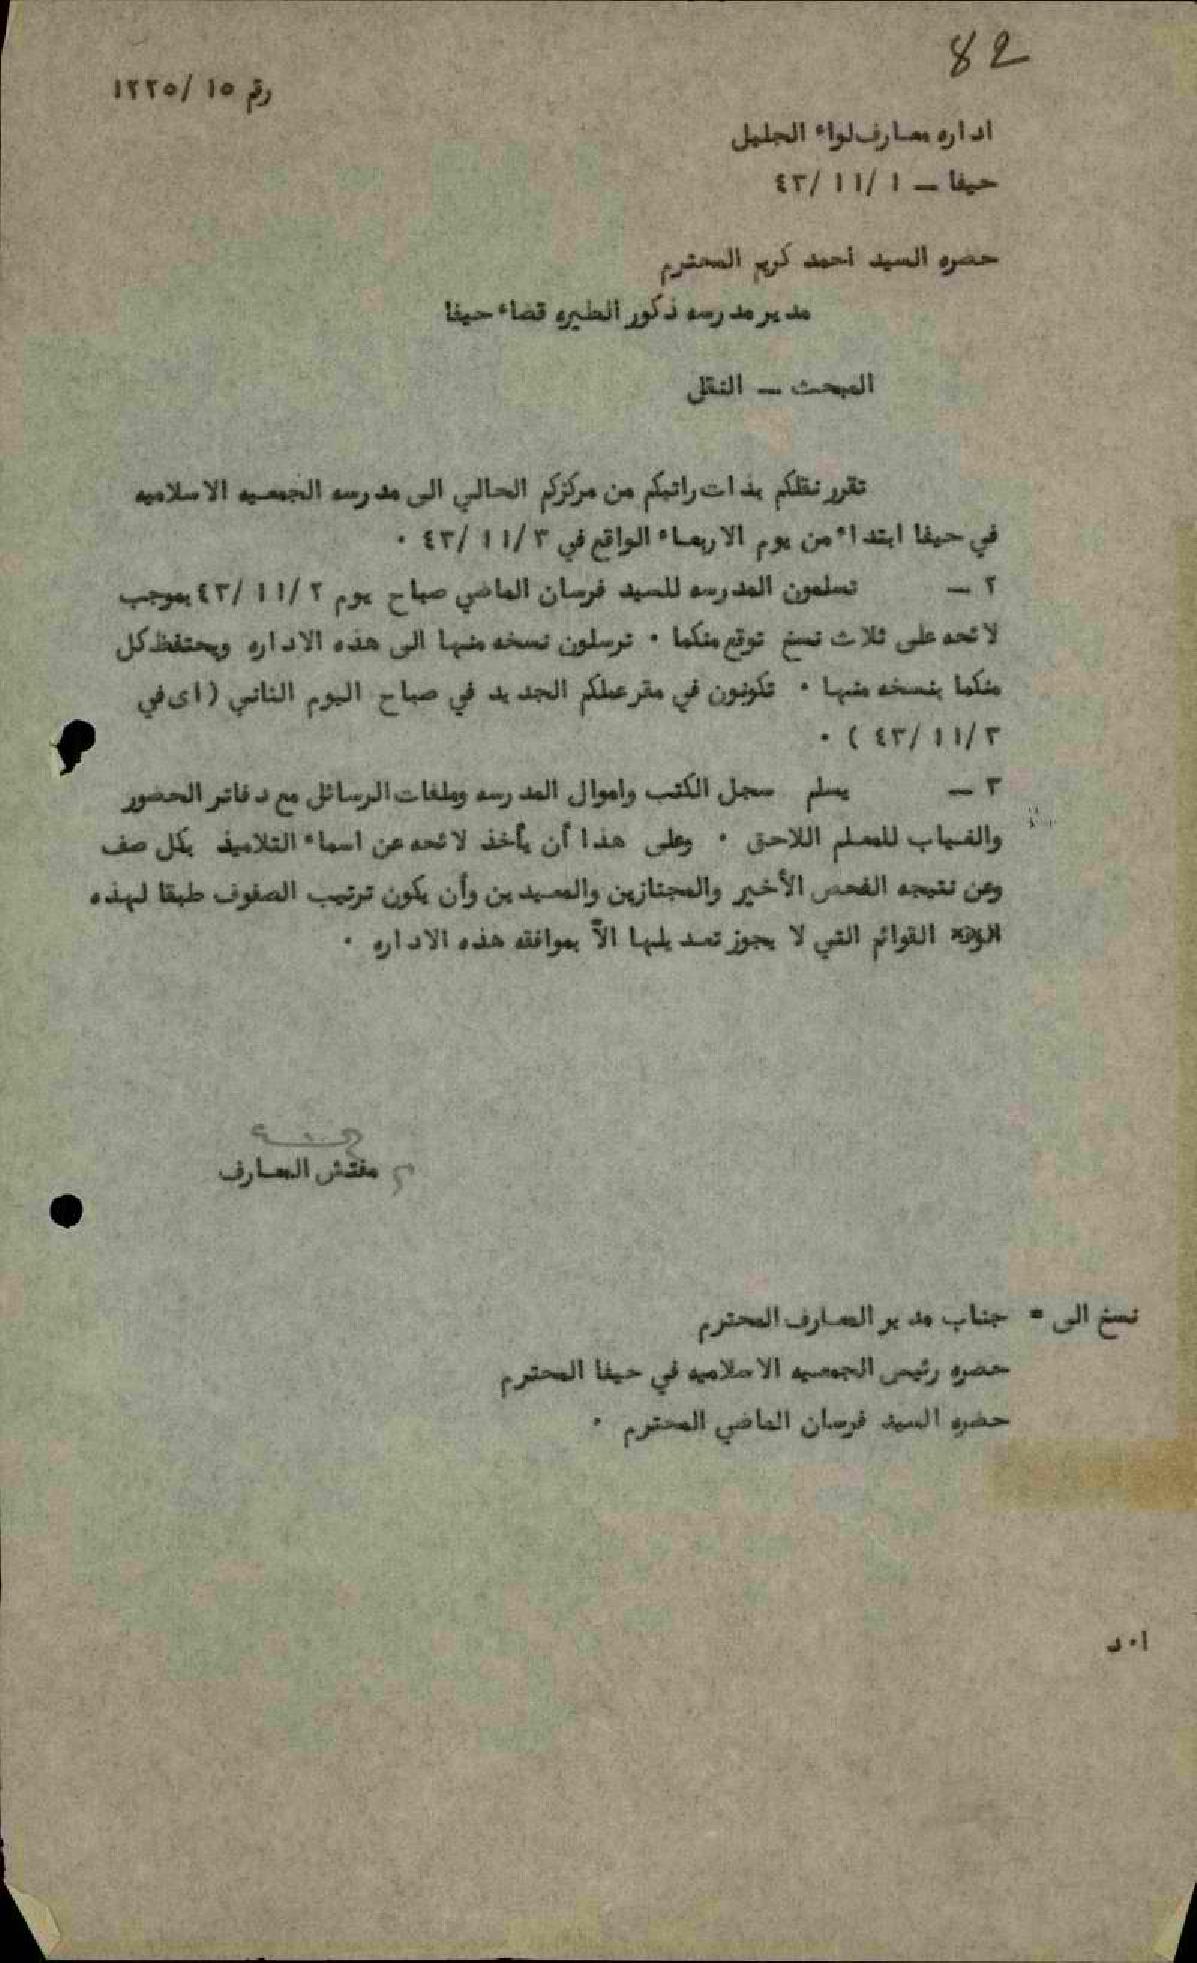 82
رقم ١٥ /١٢٢٥
اداره معارف لواء الجليل
حيفا ـ ١ /١١ /٤٣
حضره السيد احمد كريم المحترم
مدير مدرسه ذكور الطيره قضاء حيفا
المبحث ـ النقل
تقرر نقلكم بذات راتبكم من مركزكم الحالي الى مدرسه الجمعيه الاسلاميه
في حيفا ابتداء من يوم الاربعاء الواقع في ٣ /١١ /٤٣ ٠
٢ ـ تسلمون المدرسه للسيد فرسان الماضي صباح يوم ٢ /١١ /٤٣ بموجب
لائحه على ثلاث نسخ توقع منكما ٠ ترسلون نسخه منها الى هذه الاداره ويحتفظ كل
منكما بنسخه منها ٠ تكونون في مقر عملكم الجديد في صباح اليوم الثاني ( اى في
٣ /١١ /٤٣ ) ٠
٣ ـ يسلم سجل الكتب واموال المدرسه وملفات الرسائل مع دفاتر الحضور
والغياب للمعلم اللاحق ٠ وعلى هذا أن يأخذ لائحه عن اسماء التلاميذ بكل صف
وعن نتيجه الفحص الأخير والمجتازين والمعيدين وأن يكون ترتيب الصفوف طبقا لهذه
القوائم التي لا يجوز تعديلها الاّ بموافقه هذه الاداره ٠
مفتش المعارف
نسخ الى = جناب مدير المعارف المحترم
حضره رئيس الجمعيه الاسلاميه في حيفا المحترم
حضره السيد فرسان الماضي المحترم ٠
ا ٠ د